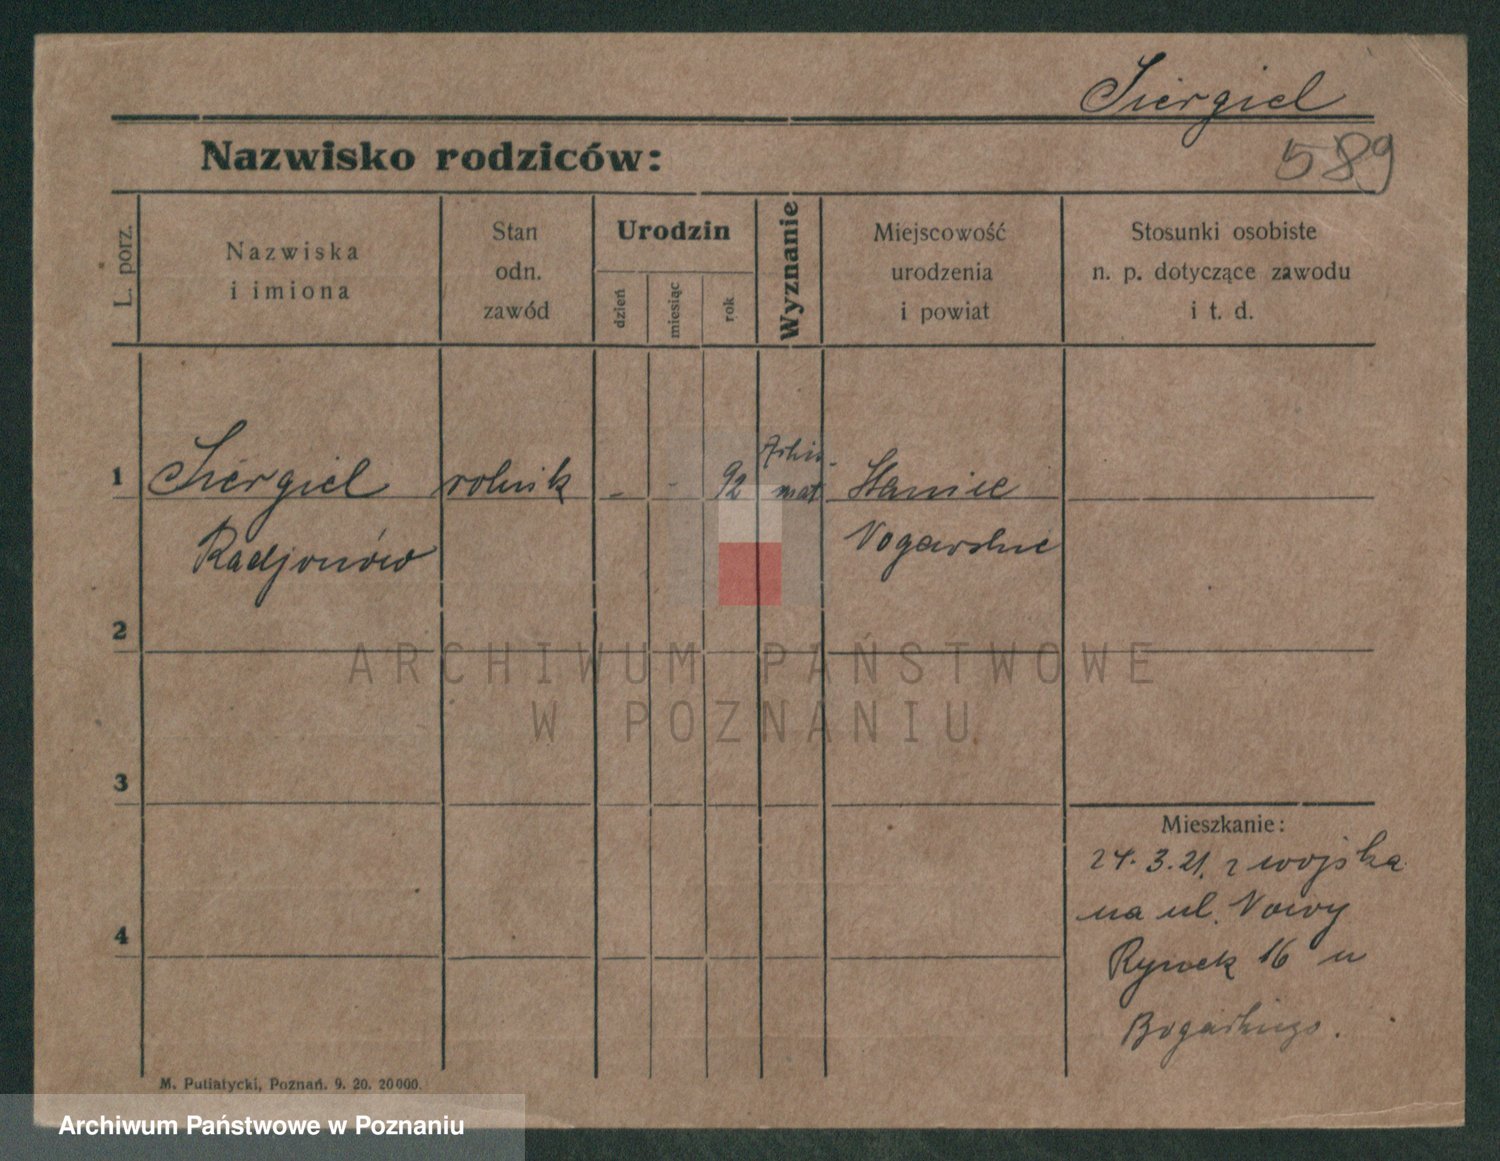 Siergiel
589
Nazwisko rodziców:
L. porz.
Nazwiska
i imiona
Stan
odn.
zawód
Urodzin
dzień
miesiąc
rok
Wyznanie
Miejscowość
urodzenia
i powiat
Stosunki osobiste
n. p. dotyczące zawodu
i t. d.
1 Siergiel rolnik - - 92 mat Staniec
Radjonów
2
3
4
ARCHIWUM PAŃSTWOWE
W POZNANIU
Mieszkanie:
24.3.21. z wojska
na ul. Nowy
Rynek 16 u
M. Putiatycki, Poznań. 9. 20. 20000.
Archiwum Państwowe w Poznaniu